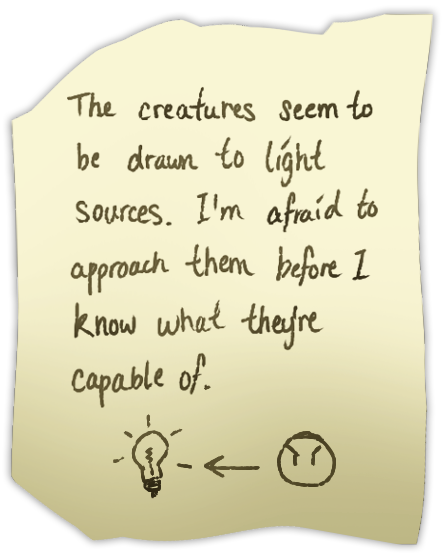 The creatures seem to
be drawn to light
sources. I'm afraid to
approach them before I
know what they're
capable of.